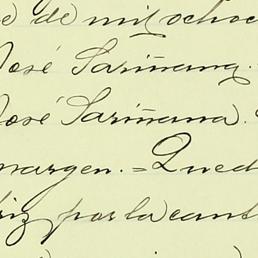 e de mil ochoc
José Sariñana.
José Sariñana.
margen.=Qued
riz por la cant